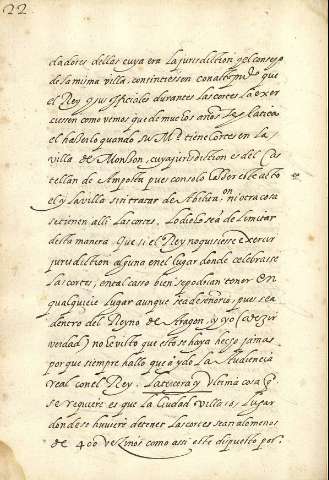 22
dadores dellas cuya era la jurisdiction y el consejo
de la misma villa, consintiessen con alternar que
el Rey y sus officiales durantes las cortes la exer
ciessen como vemos que de muchos años se platica
el hazerlo quando su M.d tiene Cortes en la
villa de Monson, cuya jurisdiction es del Cas
tellan de Amposta pues con solo
el y la villa sin tratar de ni otra cosa
se tienen alli las cortes. Lo dicho se a de limitar
desta manera, Que si el Rey no quisiesse exercir
jurisdiction alguna en el lugar donde celebrasse
las cortes, en tal caso bien se podrian tener en
qualquiere lugar aunque sea de señorio, pues sea
dentro del Reyno de Aragon, y yo (a dezir
verdad) no e visto que esto se haya hecho jamas
porque siempre hallo que a ydo la Audiencia
real con el Rey. La tercera y ultima cosa q̃
se requiere es que la Ciudad villa o lugar
donde se huvieré de tener las cortes sea a lo menos
de 400 vezinos como assi esté dispuesto por.